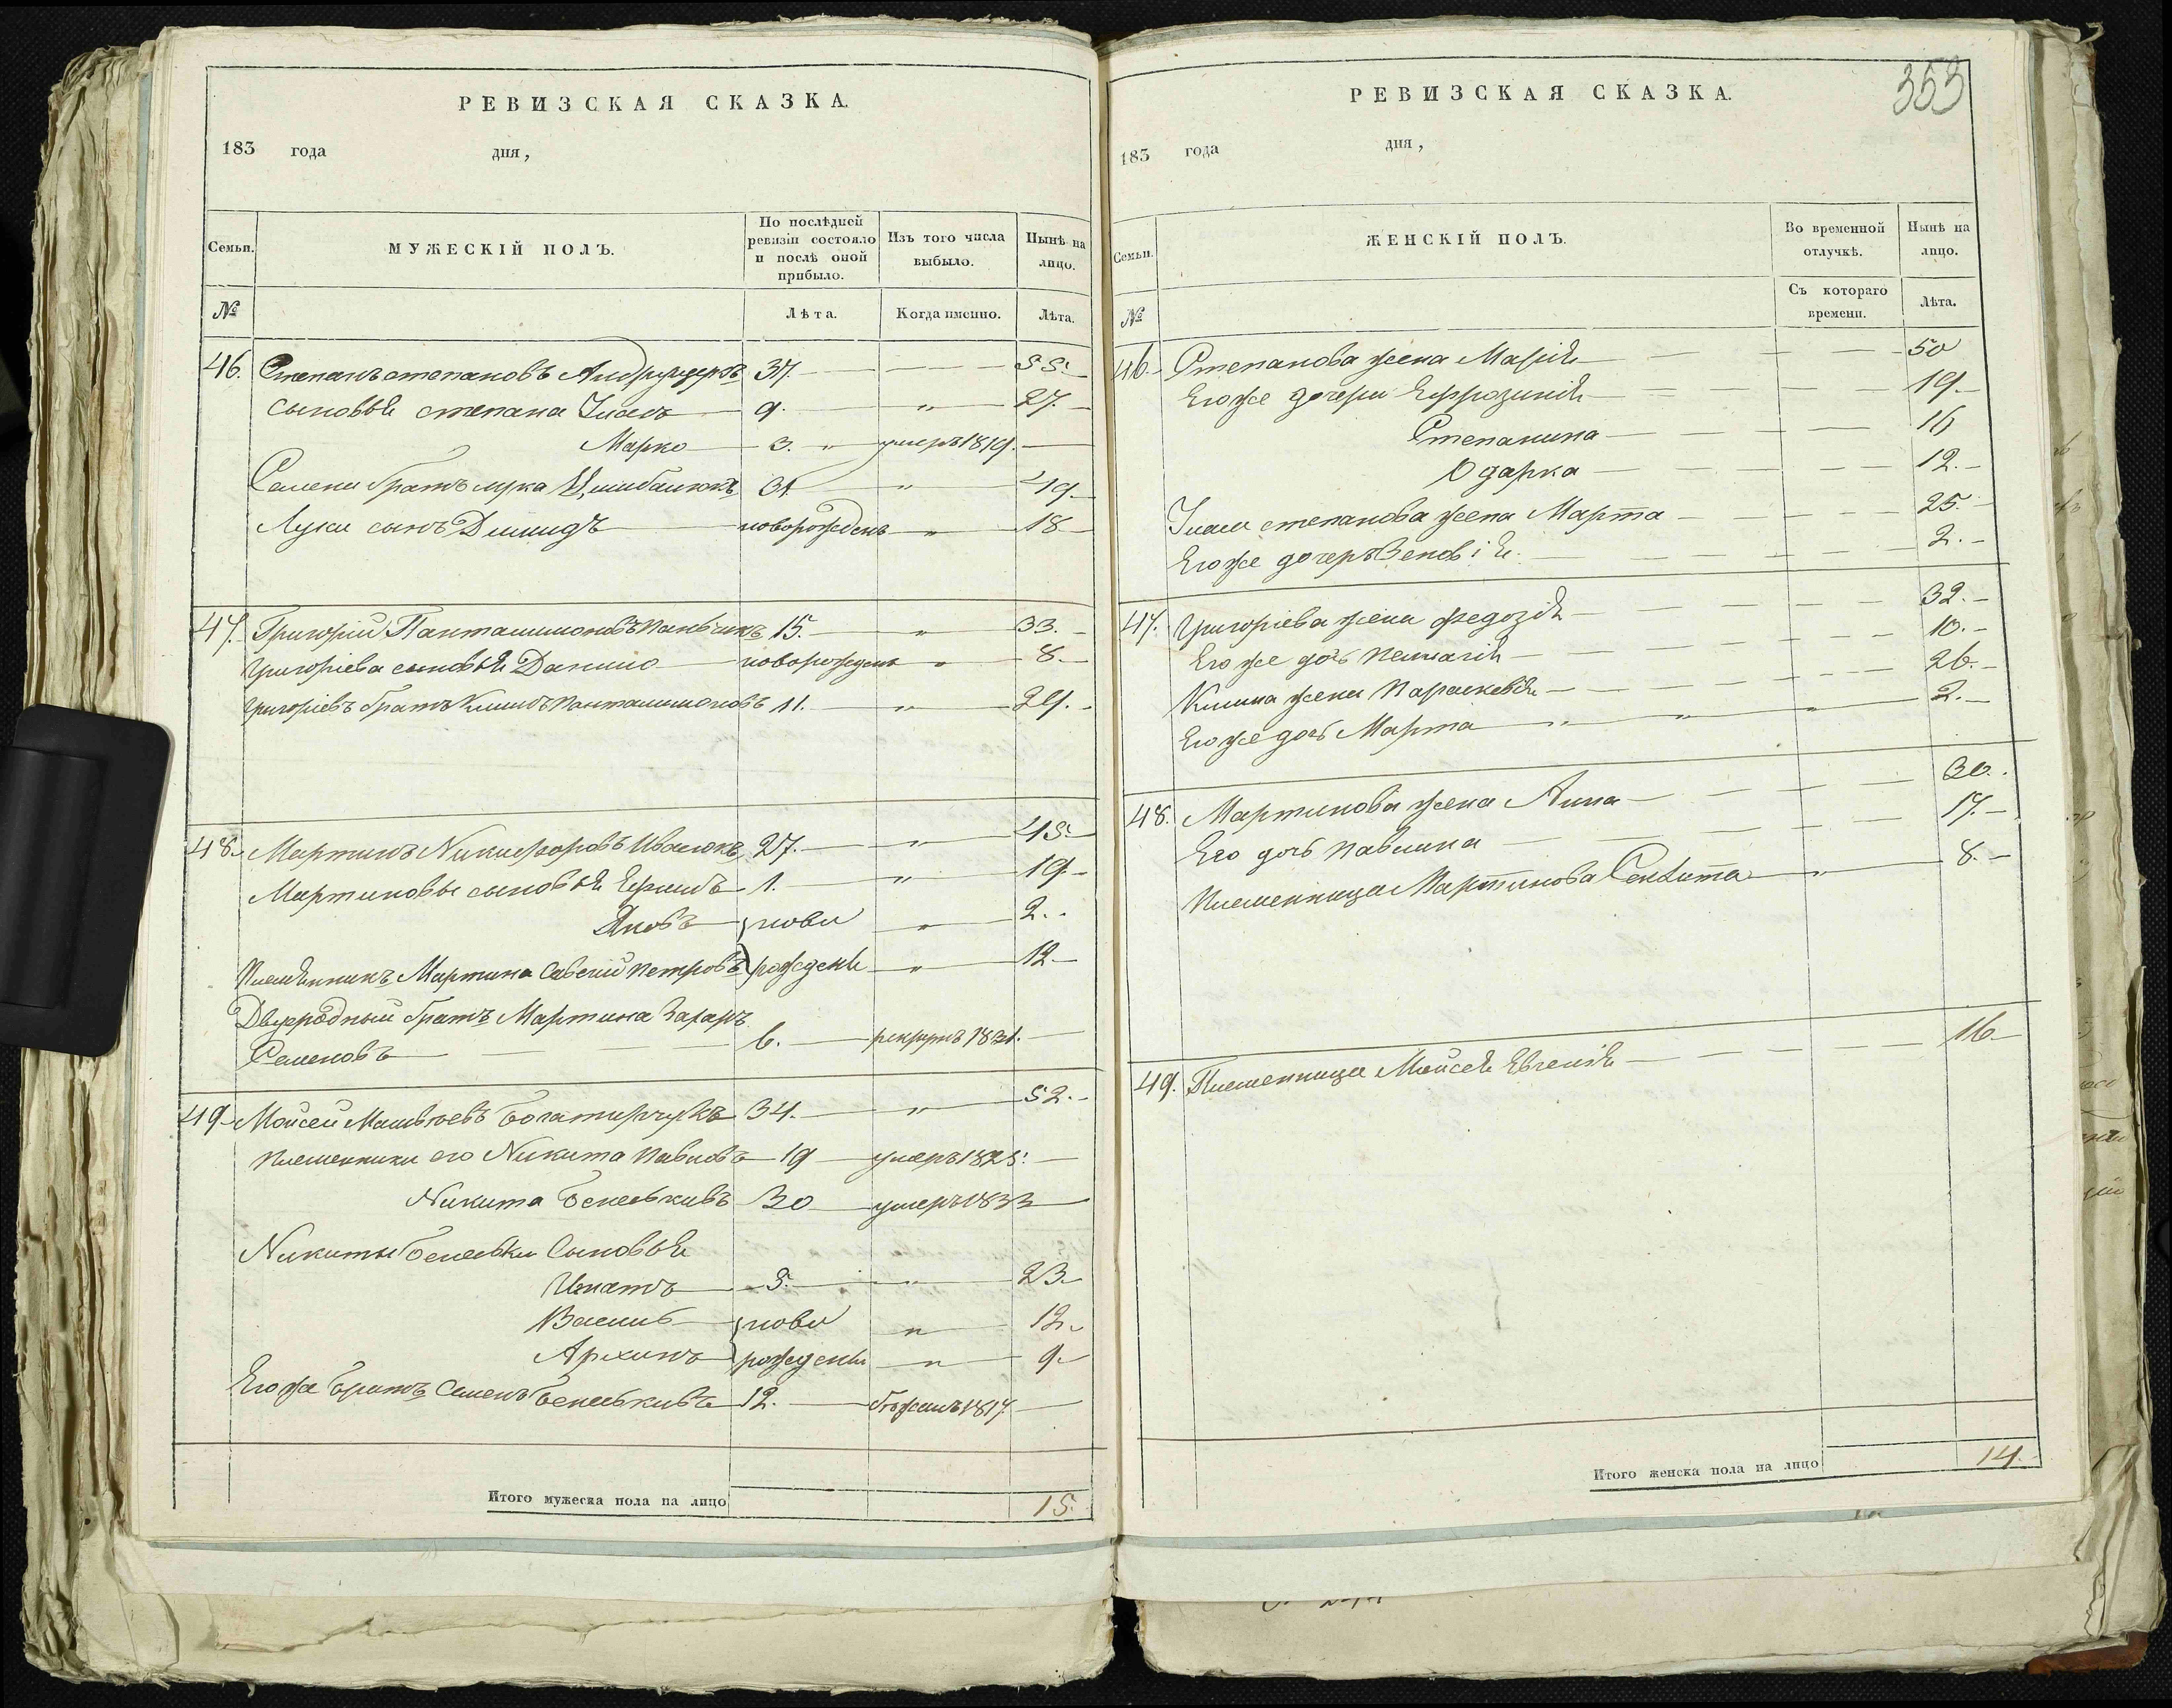 РЕВИЗСКАЯ СКАЗКА.
183 года дня,
Семьи. МУЖЕСКІЙ ПОЛЪ. По послѣдней ревизіи состояло и послѣ оной прибыло. Изъ того числа выбыло. Нынѣ на лицо.
№ Лѣта. Когда именно. Лѣта.
46. Степанъ степановъ 37. 55.
сыновья степана 9. „ 27.
Марко 3. „ умеръ 1819.
братъ лука 31 „ 49.
Луки сынъ Демидъ новорожденъ „ 18.
47. Григорій Панталимоновъ 15. „ 33.
Григоріева сыновья Данило новорожденъ „ 8.
Григоріевъ братъ Климъ Панталимоновъ 11. „ 29.
48. Мартинъ Никифоровъ Ивасюкъ 27. „ 45.
Мартиновы сыновья Ефимъ 1. „ 19.
Яковъ ново „ 2.
Племянникъ Мартина Савелій Петровъ рождены „ 12.
Двуродный братъ Мартина Захаръ
Семеновъ 6. рекрутъ 1831.
49. Мойсей Матвѣевъ Богатирчукъ 34. „ 52.
Племенники его Никита Павловъ 19 умеръ 1825.
Никита 30 умеръ 1833
Никиты Сыновья
Игнатъ 5. „ 23.
Василь ново „ 12.
Архипъ рождены „ 9.
Его же братъ Семенъ 12. бѣжалъ 1817.
Итого мужеска пола на лицо 15.
353
РЕВИЗСКАЯ СКАЗКА.
183 года дня,
Семьи. ЖЕНСКІЙ ПОЛЪ. Во временной отлучкѣ. Нынѣ на лицо.
№ Съ котораго времени. Лѣта.
46. Степанова жена Марія 50
Его же дочери Ефрозинія 19.
Степанина 16
Одарка 12.
степанова жена Марта 25.
Его же дочеръ Зеновія 2.
47. Григоріева жена Федозія 32.
Его же дочь Пелагія 10.
Клима жена Параскевія 26.
Его же дочь Марта „ „ „ 2.
48. Мартинова жена Анна 30.
Его дочь Павлина 17.
Племенница Мартинова „ 8.
49. Племенница Мойсея Евгенія 16.
Итого женска пола на лицо 14.